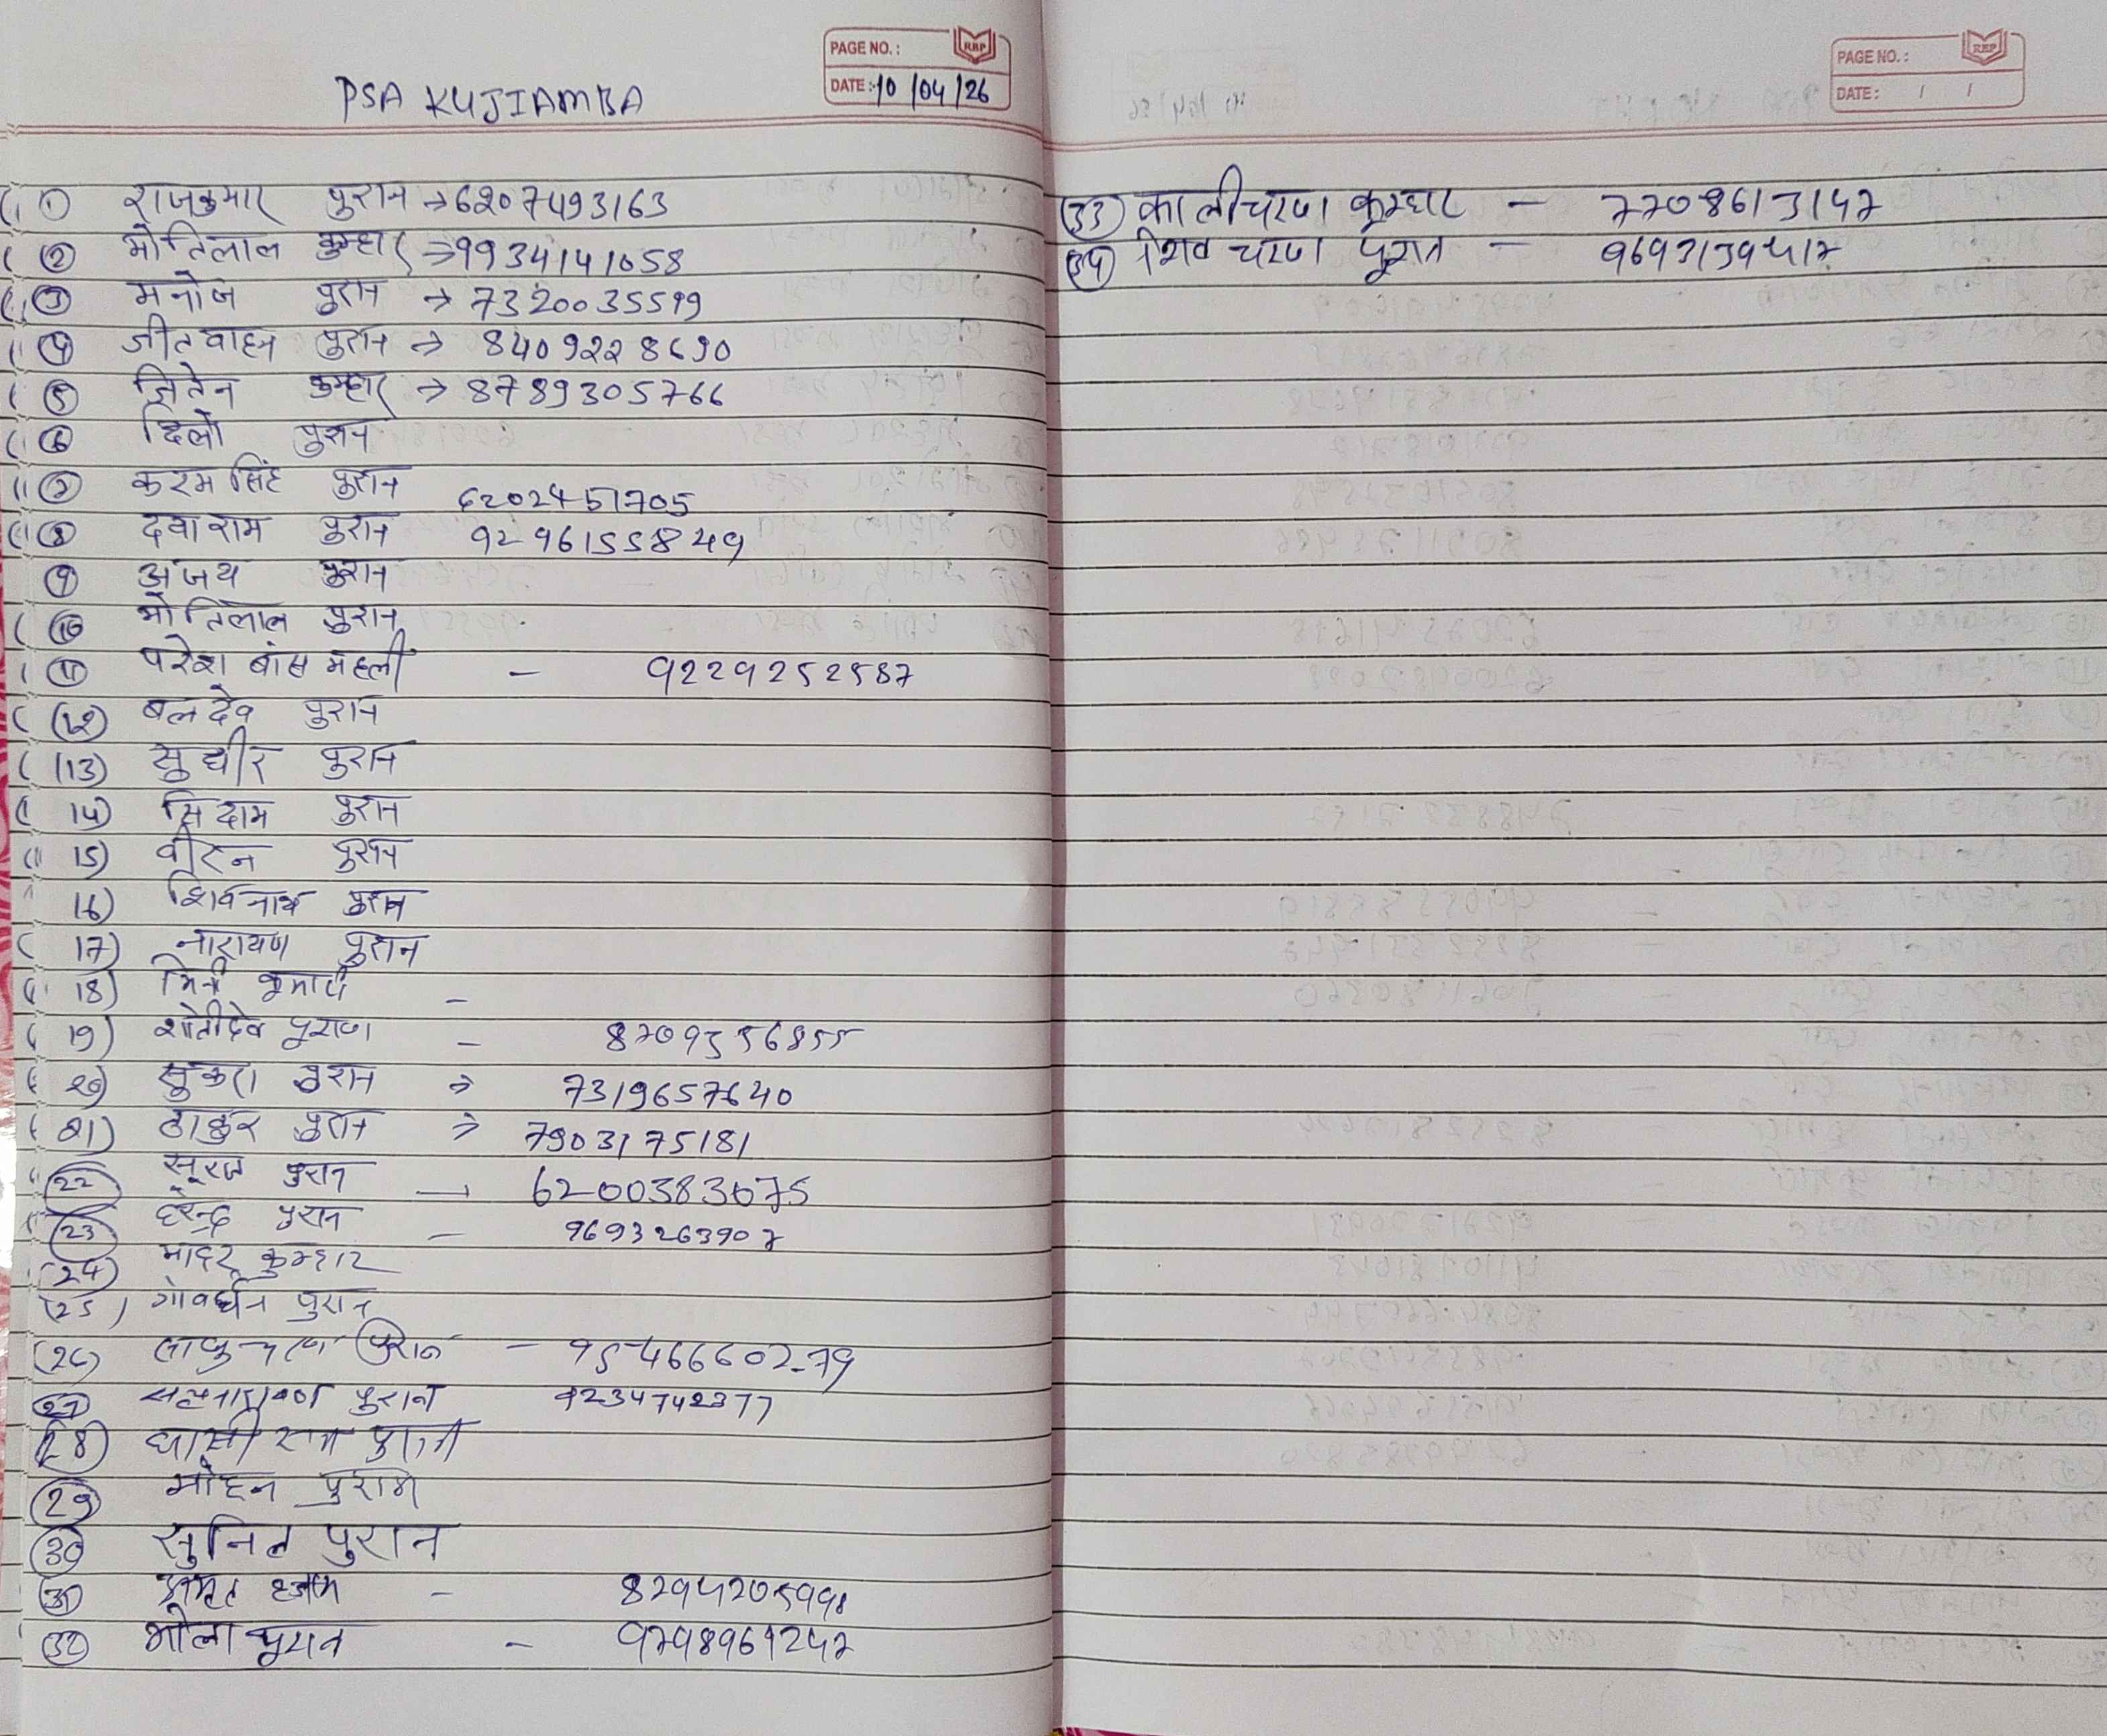 PAGE NO.: RBP
DATE: 10/04/26
PSA KUJIAMBA
① राजकुमार पुरान → 6207493163
② मोतिलाल कुम्हार → 9934141058
③ मनोज पुरान → 7320035599
④ जीतवाहन पुरान → 8409228690
⑤ जितेन कुम्हार → 8789305766
⑥ दिलो पुरान
⑦ करम सिंह पुरान 6202451705
⑧ दवाराम पुरान 92961558 49
⑨ अजय पुरान
⑩ मोतिलाल पुरान
⑪ परेश बांस महली - 9229252587
(12) बलदेव पुरान
(13) सुधीर पुरान
14) सिदाम पुरान
15) वीरेन पुरान
16) शिवनाथ पुरान
17) नारायण पुरान
18) कुमारी -
19) पुराण - 8709356855
20) सुकरा पुरान → 7319657640
21) ठाकुर पुरान → 7903175181
(22) सूरज पुरान → 6200383075
(23) हरेन्द्र पुरान - 9693263907
(24) कुम्हार
(25) गोवर्धन पुरान
(26) पुरान - 9546660279
(27) सत्यनारायण पुरान 9234742377
(28) घासी राम पुरान
(29) मोहन पुरान
(30) सुनिल पुरान
(31) - 8294205998
(32) भोला पुरान - 9798969247
PAGE NO.: RBP
DATE: / /
(33) कालीचरण कुम्हार - 7708613147
(34) शिव चरण पुरान - 9693139417